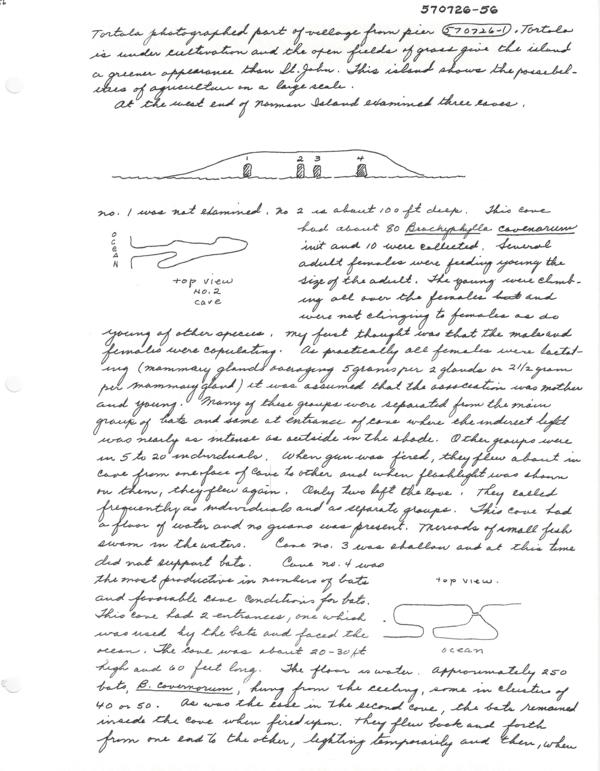 570726-56
Tortola photographed part of village from pier 570726-1. Tortola
is under cultivation and the open fields of grass give the island
a greener appearance than St. John. This island shows the possibil-
ities of agriculture on a large scale.
At the west end of Norman Island examined three caves.
1 2 3 4
No. 1 was not examined. No 2 is about 100 ft deep. This cave
had about 80 Brachyphylla cavernarum
in it and 10 were collected. Several
adult females were feeding young the
size of the adult. The young were climb-
ing all over the females but and
were not clinging to females as do
OCEAN
top view
No. 2
cave
young of other species. My first thought was that the male and
females were copulating. As practically all females were lactat-
ing (mammary glands averaging 5 grams per 2 glands or 2 1/2 gram
per mammary gland) it was assumed that the association was mother
and young. Many of these groups were separated from the main
group of bats and some at entrance of cave where the indirect light
was nearly as intense as outside in the shade. Other groups were
in 5 to 20 individuals. When gun was fired, they flew about in
cave from one face of cave to other and when flashlight was shown
on them, they flew again. Only two left the cave. They called
frequently as individuals and as separate groups. This cave had
a floor of water and no guano was present. Mireads of small fish
swam in the waters. Cave no. 3 was shallow and at this time
did not support bats. Cave no. 4 was
the most productive in numbers of bats
and favorable cave conditions for bats.
This cave had 2 entrances, one which
was used by the bats and faced the
ocean. The cave was about 20-30 ft
top view.
ocean
high and 60 feet long. The floor is water. Approximately 250
bats, B. cavernarum, hung from the ceiling, some in clusters of
40 or 50. As was the case in the second cave, the bats remained
inside the cave when fired upon. They flew back and forth
from one end to the other, lighting temporarily and then, when